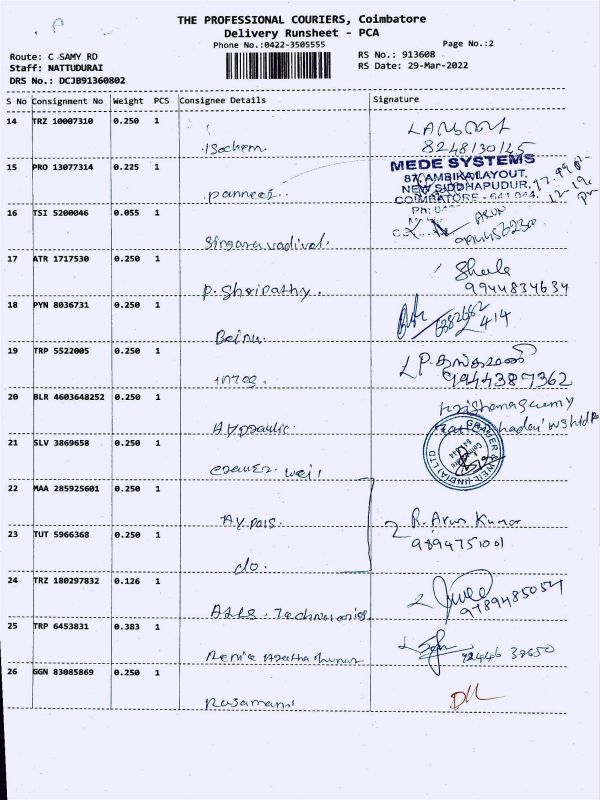 THE PROFESSIONAL COURIERS, Coimbatore
Delivery Runsheet - PCA
Phone No.:0422-3505555
Page No.:2
Route: C SAMY RD
RS No.: 913608
Staff: NATTUDURAI
RS Date: 29-Mar-2022
DRS No.: DCJB91360802
S No Consignment No Weight PCS Consignee Details Signature
14 TRZ 10007310 0.250 1
Isochem.
8248130125
15 PRO 13077314 0.225 1
MEDE SYSTEMS
87, AMBIKA LAYOUT,
NEW SIDDHAPUDUR,
COIMBATORE - 641 044.
Panneer.
Ph:
16 TSI 5200046 0.055 1
ARUN
Singaravadivel.
17 ATR 1717530 0.250 1
P. Shripathy.
9944834634
18 PYN 8036731 0.250 1
Beinu.
414
19 TRP 5522005 0.250 1
9944387362
20 BLR 4603648252 0.250 1
Hydraulic.
21 SLV 3869658 0.250 1
GRAUER & WEIL (INDIA) LTD
Grauer. Weil
22 MAA 285925601 0.250 1
2 R. Arun Kumar
9894751001
23 TUT 5966368 0.250 1
do.
24 TRZ 180297832 0.126 1
9789485054
25 TRP 6453831 0.383 1
26 GGN 83085869 0.250 1
Rasamani